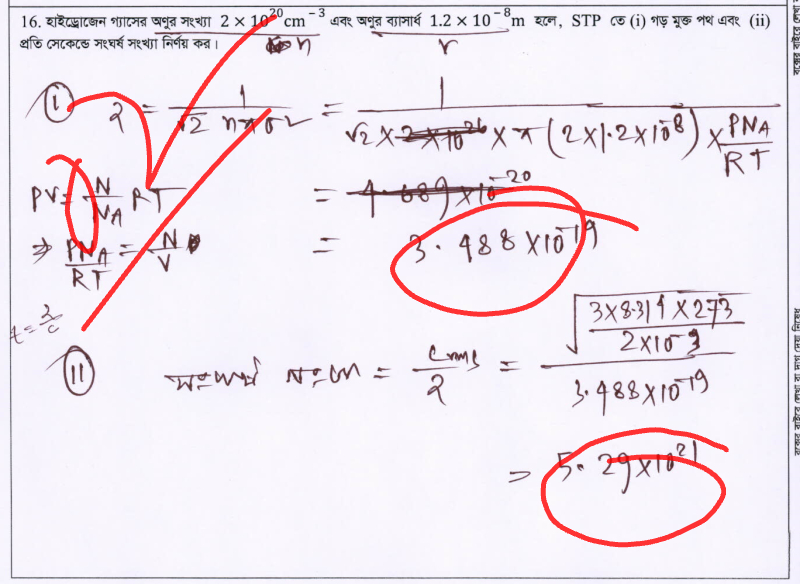 16. হাইড্রোজেন গ্যাসের অণুর সংখ্যা 2 × 10²⁰ cm⁻³ এবং অণুর ব্যাসার্ধ 1.2 × 10⁻⁸ m হলে, STP তে (i) গড় মুক্ত পথ এবং (ii)
প্রতি সেকেন্ডে সংঘর্ষ সংখ্যা নির্ণয় কর।
n r
(i) λ = 1 / √2 nπσ² = 1 / √2 × 2×10²⁶ × π (2×1.2×10⁻⁸) × PN_A / RT
PV = N / N_A RT = 4.689×10⁻²⁰
⇒ PN_A / RT = N / V = 3.488×10⁻¹⁹
(ii) সংঘর্ষ সংখ্যা = C_rms / λ = √(3×8.314×273 / 2×10⁻³) / 3.488×10⁻¹⁹
= 5.29×10²¹